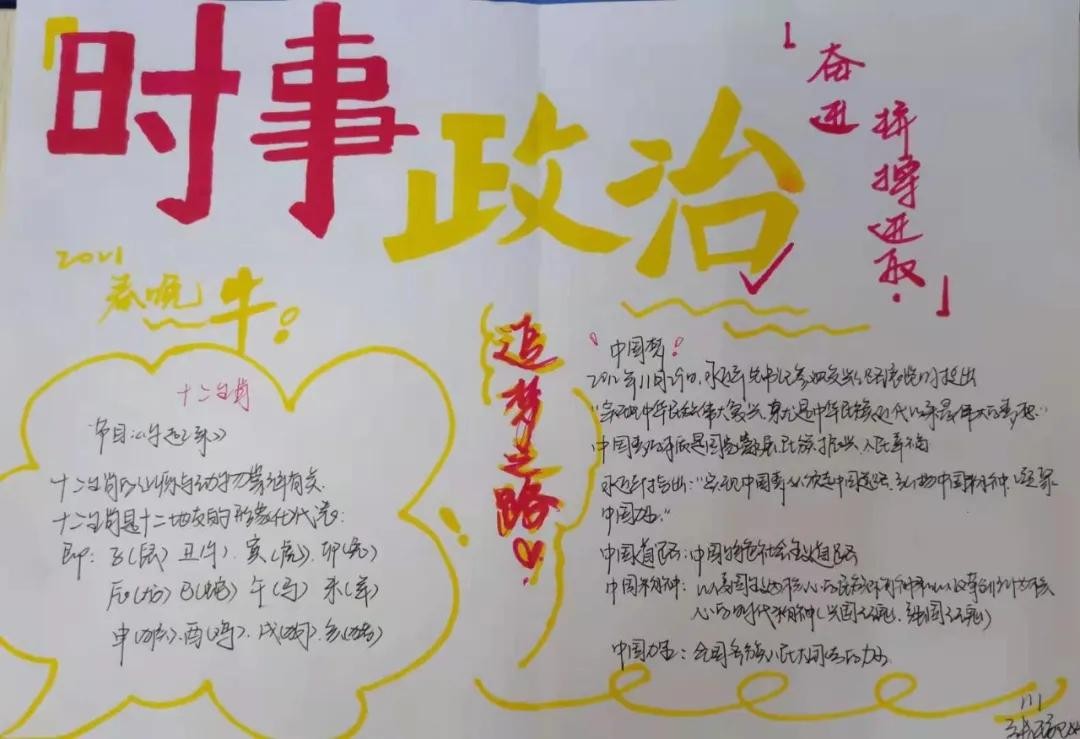 「时事
政治
奋进
拼搏进取.」
2021
春晚 牛
十二生肖
节目:《牛起来》
十二生肖的起源与动物崇拜有关.
十二生肖是十二地支的形象化代表:
即: 子(鼠) 丑(牛). 寅(虎). 卯(兔)
辰(龙) 巳(蛇) 午(马) 未(羊)
申(猴). 酉(鸡). 戌(狗). 亥(猪)
追梦之路
中国梦
2012年11月29日,
"实现中华民族伟大复兴, 就是中华民族近代以来最伟大的梦想."
中国梦的本质是国家富强, 民族振兴, 人民幸福
指出: "实现中国梦必须走中国道路, 弘扬中国精神, 凝聚
中国力量."
中国道路: 中国特色社会主义道路
中国精神: 以爱国主义为核心的民族精神和以改革创新为核
心的时代精神(兴国之魂, 强国之魂)
中国力量: 全国各族人民大团结的力量